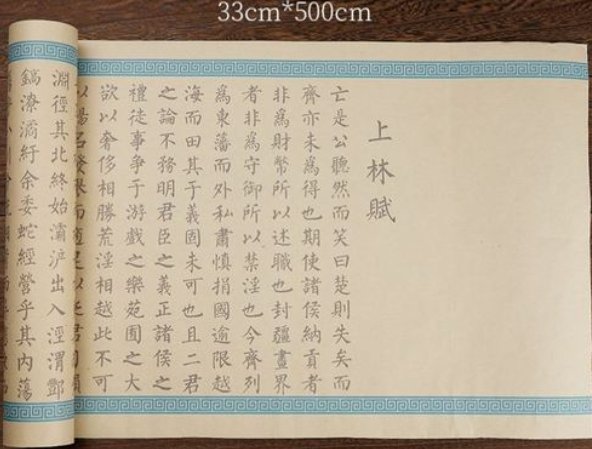 33cm*500cm
上林賦
亡是公聽然而笑曰楚則失矣而
齊亦未為得也期使諸侯納貢者
非為財幣所以述職也封疆畫界
者非為守御所以禁淫也今齊列
為東藩而外私肅慎捐國逾限越
海而田其于義固未可也且二君
之論不務明君臣之義正諸侯之
禮徒事爭于游戲之樂苑囿之大
欲以奢侈相勝荒淫相越此不可
以揚名發而適足以君
淵徑其北終始灞浐出入涇渭酆
鎬潦潏紆余委蛇經營乎其內蕩